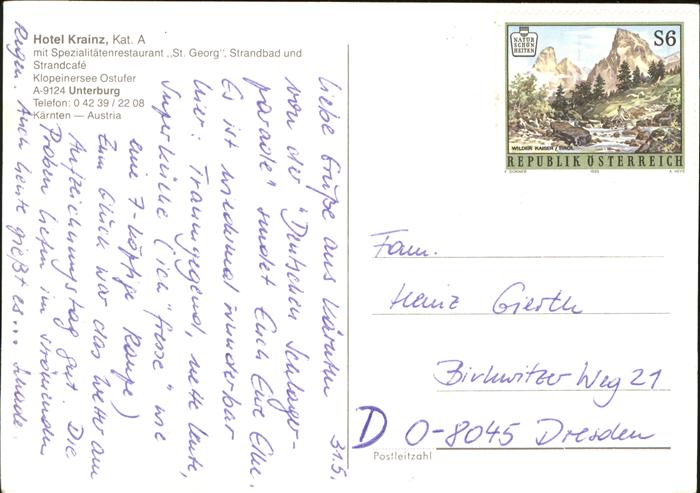 Hotel Krainz, Kat. A
mit Spezialitätenrestaurant „St. Georg", Strandbad und
Strandcafé
Klopeinersee Ostufer
A-9124 Unterburg
Telefon: 0 42 39 / 22 08
Kärnten — Austria
31.5.
Liebe Grüße aus Kärnten
von der "Deutschen Schlager-
parade" sendet Euch Eure Elke.
Es ist wiedermal wunderbar
hier: Traumgegend, nette Leute,
Superküche (ich "fresse" wie
eine 7-köpfige Raupe)
Zum Glück war das Wetter am
Aufzeichnungstag gut. Die
Proben liefen im strömenden
Regen. Auch heute gießt es... schade.
NATUR
SCHÖN
HEITEN
S6
WILDER KAISER / TIROL
REPUBLIK ÖSTERREICH
1993
Fam.
Heinz Gierth
Birkwitzer Weg 21
D O-8045 Dresden
Postleitzahl